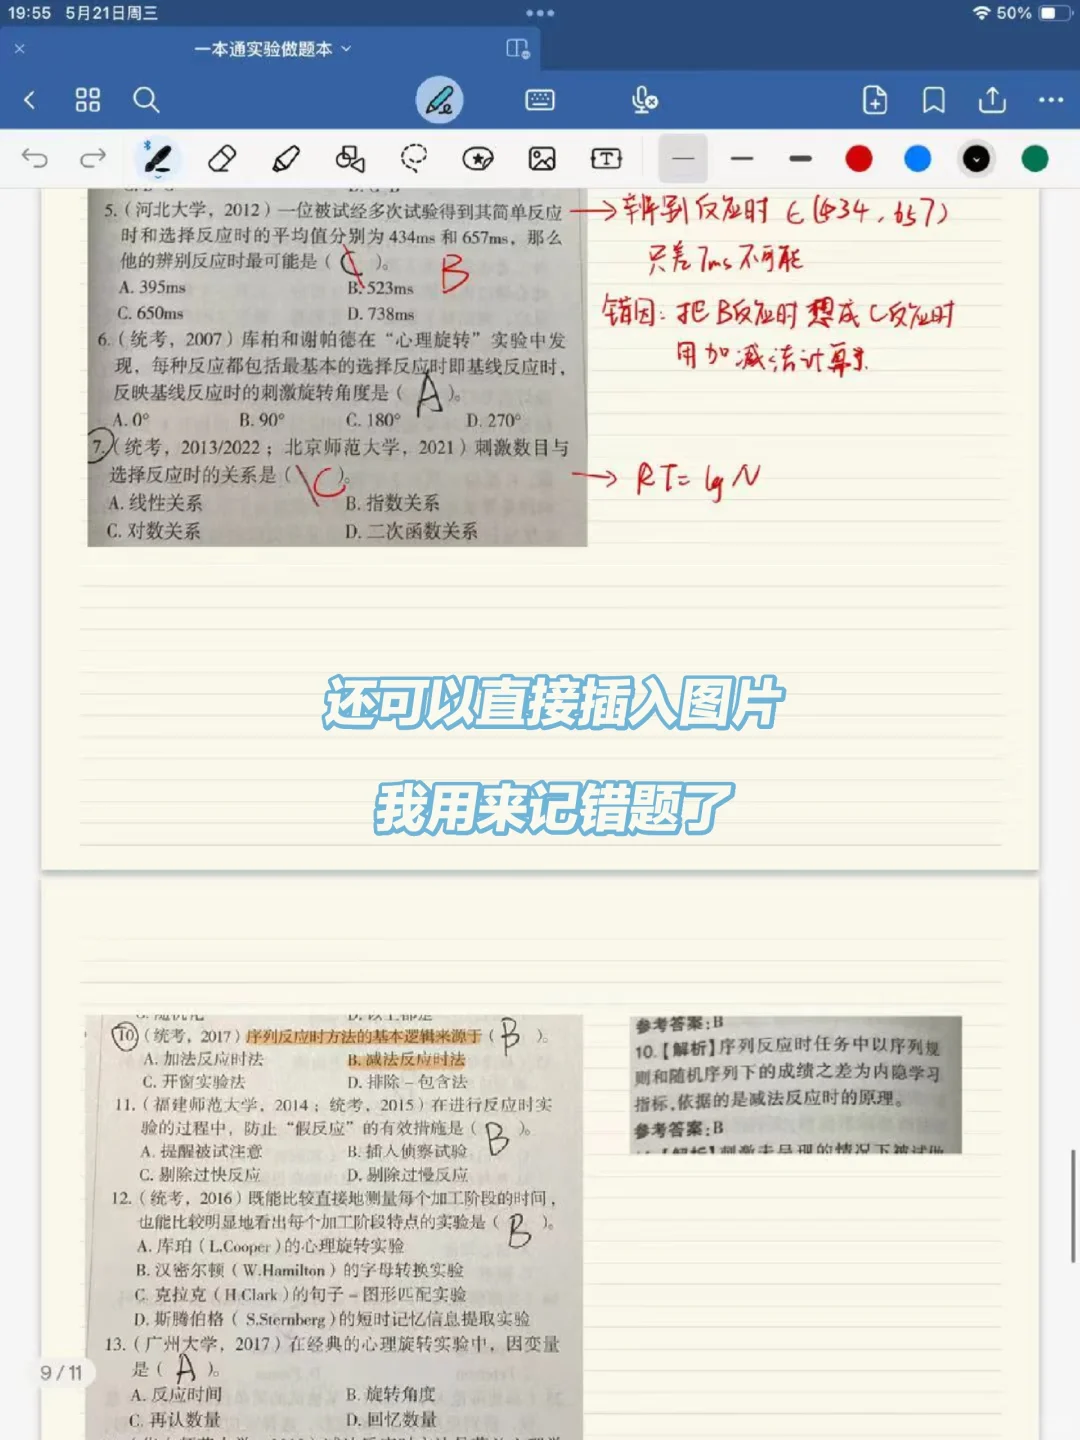 19:55 5月21日周三
50%
一本通实验做题本
5.(河北大学，2012)一位被试经多次试验得到其简单反应
时和选择反应时的平均值分别为434ms和657ms，那么
他的辨别反应时最可能是( C )。 B
A. 395ms B. 523ms
C. 650ms D. 738ms
→辨别反应时 ∈(434, 657)
只差7ms不可能
错因：把B反应时想成C反应时
用加减法计算
6.(统考，2007)库柏和谢帕德在“心理旋转”实验中发
现，每种反应都包括最基本的选择反应时即基线反应时，
反映基线反应时的刺激旋转角度是( A )。
A. 0° B. 90° C. 180° D. 270°
7.(统考，2013/2022；北京师范大学，2021)刺激数目与
选择反应时的关系是( C )。
→ RT= lg N
A. 线性关系 B. 指数关系
C. 对数关系 D. 二次函数关系
还可以直接插入图片
我用来记错题了
10.(统考，2017)序列反应时方法的基本逻辑来源于( B )。
A. 加法反应时法 B. 减法反应时法
C. 开窗实验法 D. 排除－包含法
11.(福建师范大学，2014；统考，2015)在进行反应时实
验的过程中，防止“假反应”的有效措施是( B )。
A. 提醒被试注意 B. 插入侦察试验
C. 剔除过快反应 D. 剔除过慢反应
12.(统考，2016)既能比较直接地测量每个加工阶段的时间，
也能比较明显地看出每个加工阶段特点的实验是( B )。
A. 库珀(L.Cooper)的心理旋转实验
B. 汉密尔顿(W.Hamilton)的字母转换实验
C. 克拉克(H.Clark)的句子－图形匹配实验
D. 斯腾伯格(S.Sternberg)的短时记忆信息提取实验
13.(广州大学，2017)在经典的心理旋转实验中，因变量
是( A )。
A. 反应时间 B. 旋转角度
C. 再认数量 D. 回忆数量
参考答案：B
10.【解析】序列反应时任务中以序列规
则和随机序列下的成绩之差为内隐学习
指标，依据的是减法反应时的原理。
参考答案：B
9/11